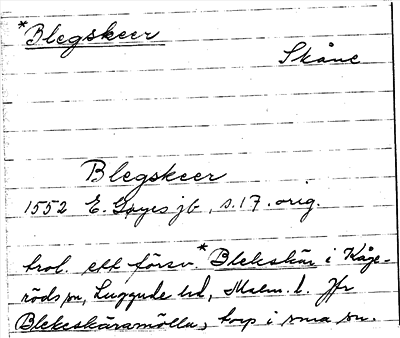 *Blegskeer
Skåne
Blegskeer
1552 E. Gøyes jb, s. 17. orig.
trol. ett försv. *Blekeskär i Kåge-
röds sn, Luggude hd, Malm. l. Jfr
Blekeskärsmölla, torp i sma sn.